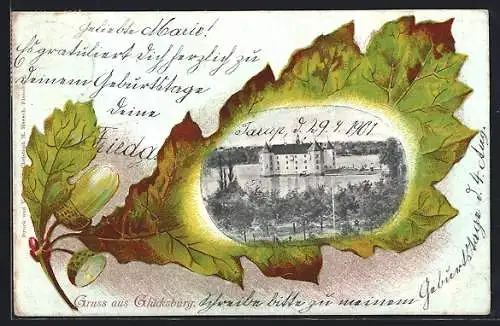 Geliebte Marie!
Es gratuliert Dich herzlich zu
Deinem Geburtstage
Deine
Frieda
d. 29.7.1901
Gruss aus Glücksburg.
Schreibe bitte zu meinem
Geburtstage d. 4. Aug.
Druck von